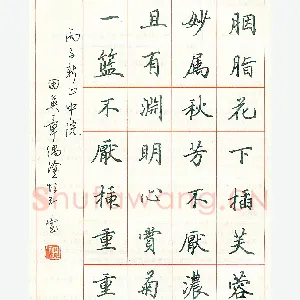 胭脂花下插芙蓉
妙属秋芳不厭濃
且有淵明心賞菊
一籃不厭種重重
丙子新正中浣
田英章
Shufawang.CN